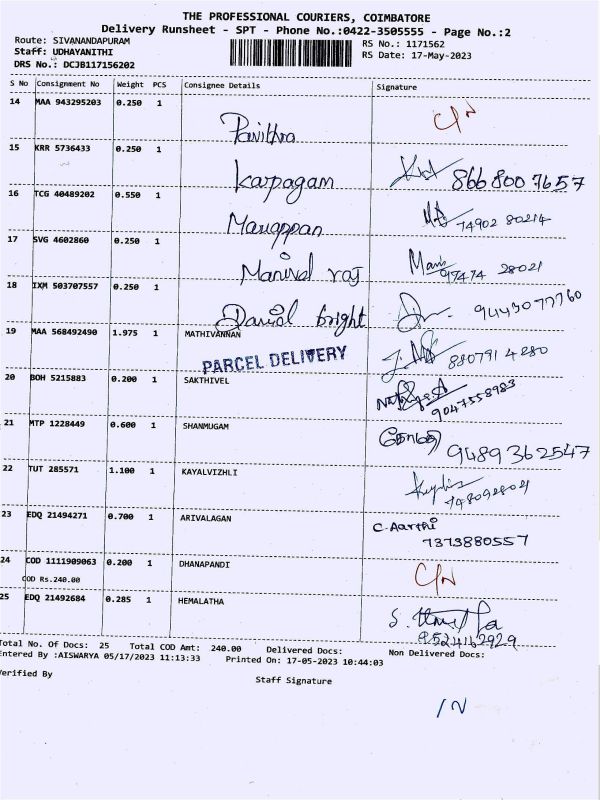 THE PROFESSIONAL COURIERS, COIMBATORE
Delivery Runsheet - SPT - Phone No.:0422-3505555 - Page No.:2
Route: SIVANANDAPURAM
RS No.: 1171562
Staff: UDHAYANITHI
RS Date: 17-May-2023
DRS No.: DCJB117156202
S No Consignment No Weight PCS Consignee Details Signature
14 MAA 943295203 0.250 1 Pavithra C/N
15 KRR 5736433 0.250 1 karpagam 866 800 7657
16 TCG 40489202 0.550 1 74902 80214
17 SVG 4602860 0.250 1 97474 28021
18 IXM 503707557 0.250 1 Daniel bright
19 MAA 568492490 1.975 1 MATHIVANNAN 8807914280
PARCEL DELIVERY
20 BOH 5215883 0.200 1 SAKTHIVEL 9047558983
21 MTP 1228449 0.600 1 SHANMUGAM 9489362547
22 TUT 285571 1.100 1 KAYALVIZHLI
23 EDQ 21494271 0.700 1 ARIVALAGAN C. Aarthi
7373880557
24 COD 1111909063 0.200 1 DHANAPANDI C/N
COD Rs.240.00
25 EDQ 21492684 0.285 1 HEMALATHA
9524162929
Total No. Of Docs: 25 Total COD Amt: 240.00 Delivered Docs: Non Delivered Docs:
Entered By :AISWARYA 05/17/2023 11:13:33 Printed On: 17-05-2023 10:44:03
Verified By
Staff Signature
1N